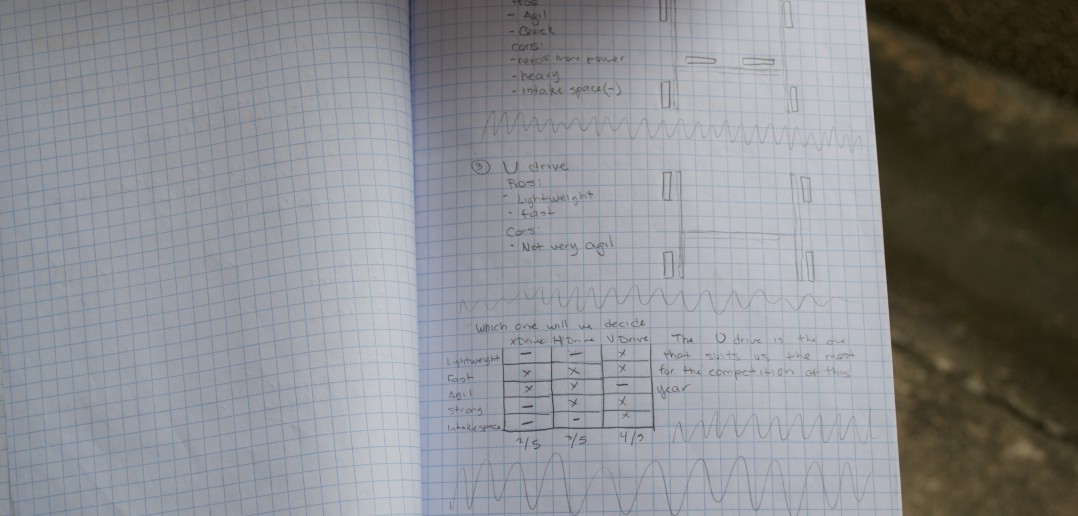 - Agil
- Quick
cons:
- needs more power
- heavy
- intake space(-)
③ U drive
Pros:
- Lightweight
- fast
Cons:
- Not very agil
Which one will we decide
xDrive H Drive U Drive
Lightweight — — x
Fast x x x
Agil x x —
Strong — x x
Intake space — - x
2/5 3/5 4/5
The U drive is the one
that suits us the most
for the competition of this
year